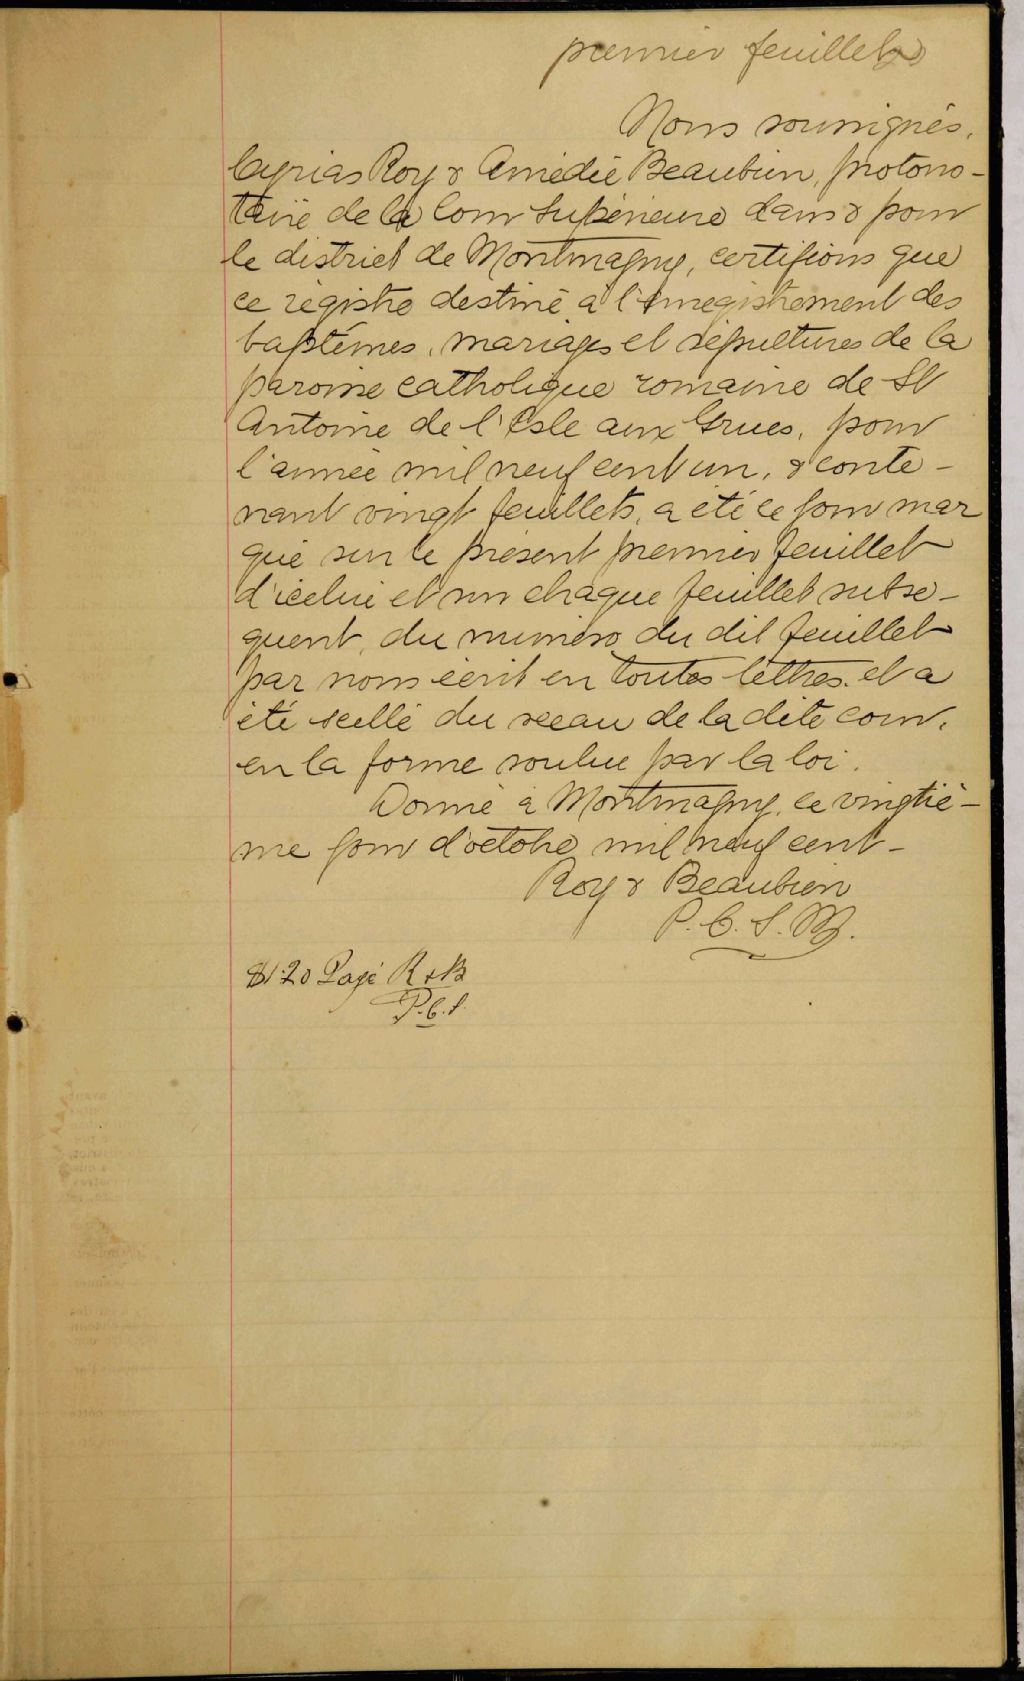 premier feuillet
Nous soussignés,
Cyrias Roy & Amédée Beaubien, protono-
taire de la Cour Supérieure dans & pour
le district de Montmagny, certifions que
ce régistre destiné à l'enregistrement des
baptêmes, mariages et sépultures de la
paroisse catholique romaine de St
Antoine de l'Isle aux Grues, pour
l'année mil neuf cent un, & conte-
nant vingt feuillets, a été ce jour mar
qué sur le présent premier feuillet
d'icelui et sur chaque feuillet subsé-
quent, du numéro du dit feuillet
par nous écrit en toutes lettres et a
été scellé du sceau de la dite cour,
en la forme voulue par la loi.
Donné à Montmagny, ce vingtiè-
me jour d'octobre mil neuf cent -
Roy & Beaubien
P. C. S. M.
$1.20 Payé R & B
P.C.S.